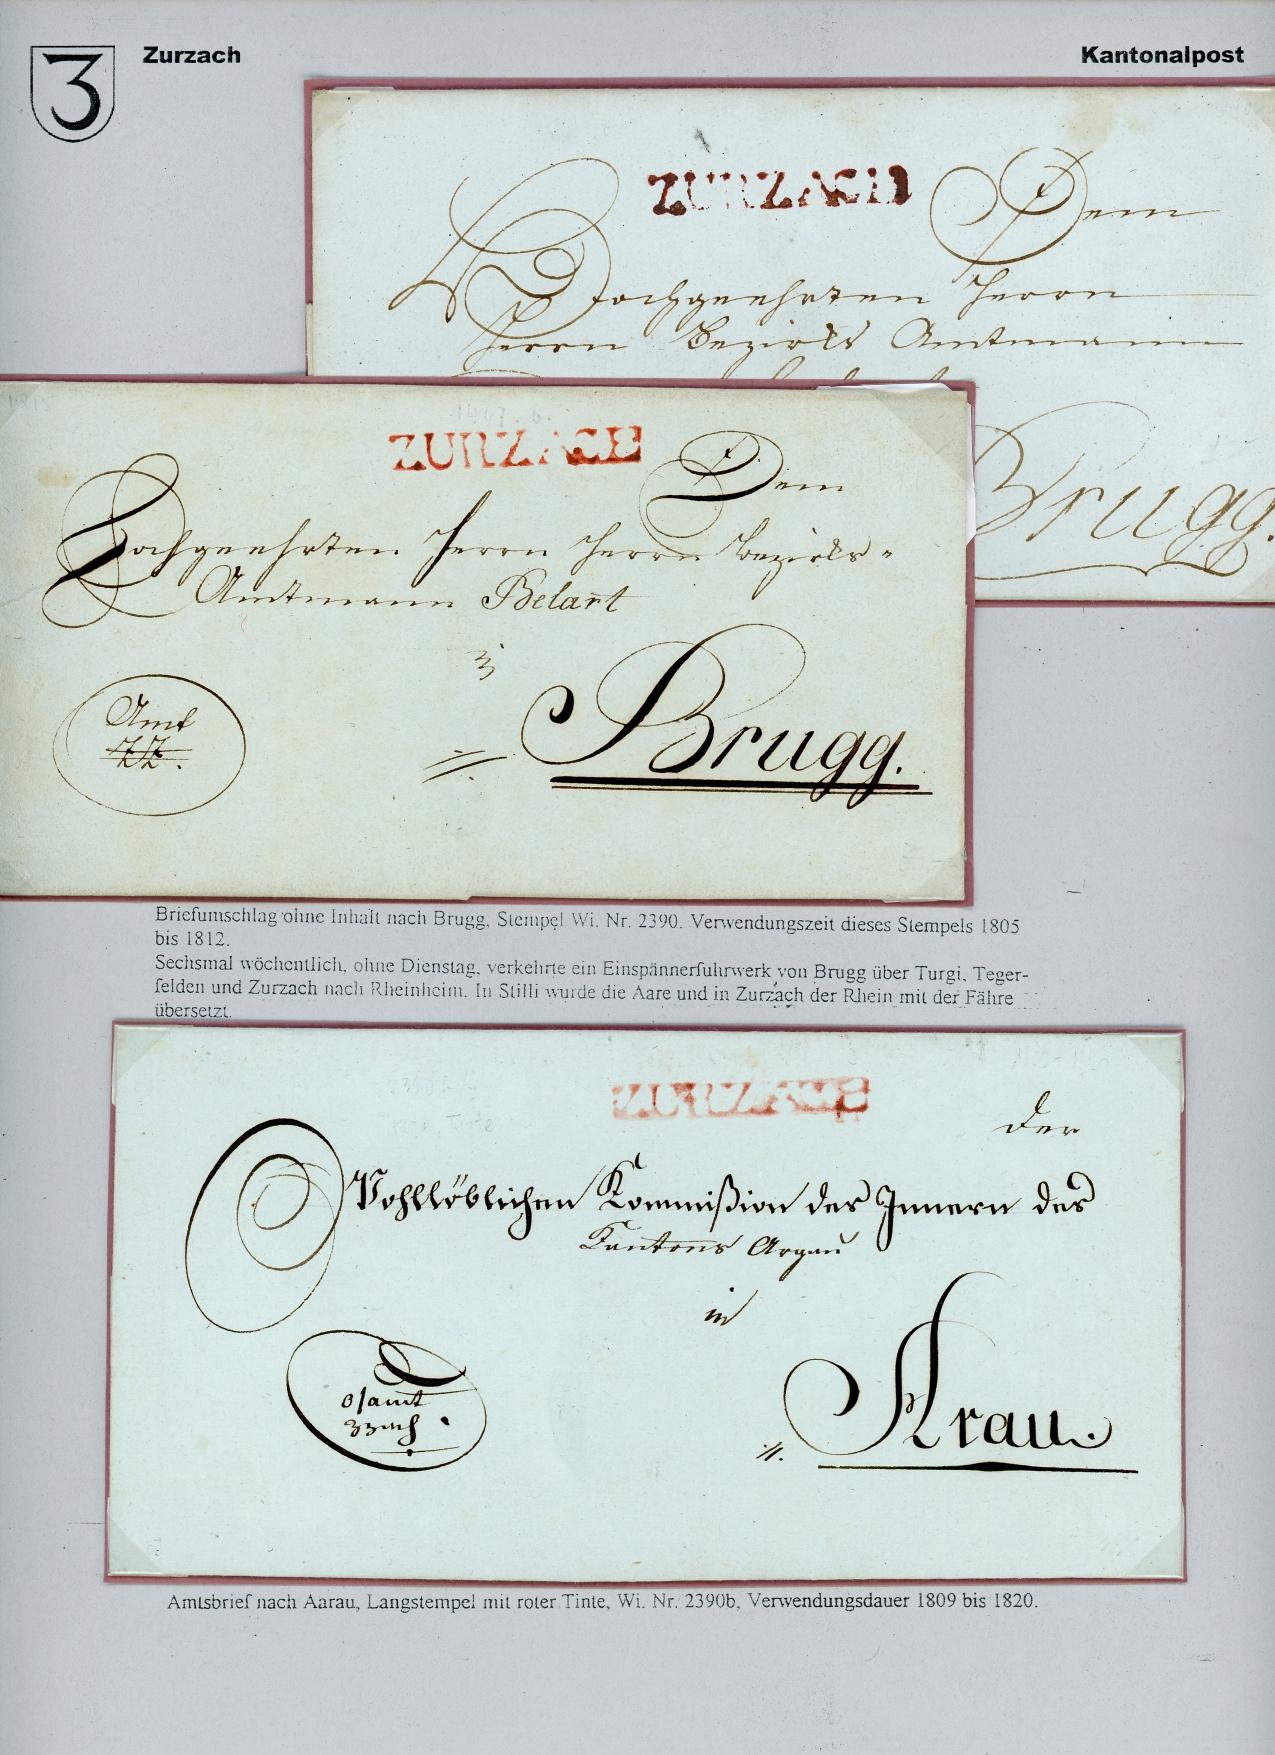 3
Zurzach
Kantonalpost
ZURZACH
Dem
Hochgeehrten Herrn
Herrn Bezirks Amtmann
Brugg.
ZURZACH
Dem
Hochgeehrten Herrn Herrn Bezirks-
Amtmann Belart
Amt
ZZ.
Brugg.
Briefumschlag ohne Inhalt nach Brugg, Stempel Wi. Nr. 2390. Verwendungszeit dieses Stempels 1805
bis 1812.
Sechsmal wöchentlich, ohne Dienstag, verkehrte ein Einspännerfuhrwerk von Brugg über Turgi, Teger-
felden und Zurzach nach Rheinheim. In Stilli wurde die Aare und in Zurzach der Rhein mit der Fähre
übersetzt.
ZURZACH
Der
Wohllöblichen Kommißion des Innern des
Kantons Argau
in
Arau.
Amtsbrief nach Aarau, Langstempel mit roter Tinte, Wi. Nr. 2390b, Verwendungsdauer 1809 bis 1820.